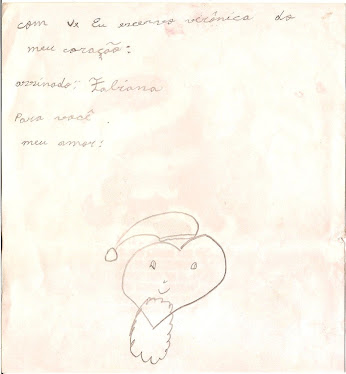 com vx Eu escervo verônica do
meu coração:
assinado: Fabiana
Para você.
meu amor: